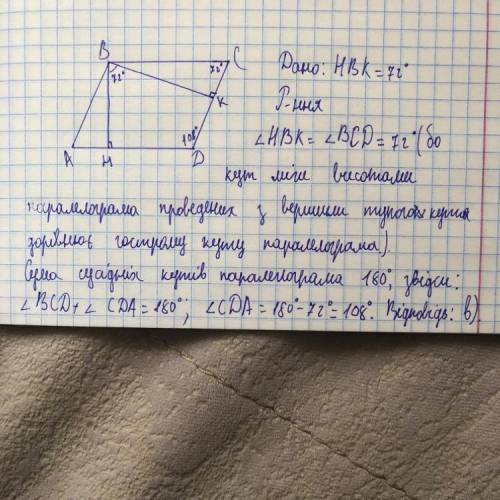 B
C
72°
72°
K
108°
A
H
D
Дано: HBK = 72°
Р-ння
∠HBK = ∠BCD = 72° (бо
кут між висотами
паралелограма проведених з вершини тупого кута
дорівнює гострому куту паралелограма).
Сума сусідніх кутів паралелограма 180°, звідси:
∠BCD + ∠CDA = 180°; ∠CDA = 180° - 72° = 108°. Відповідь: в)